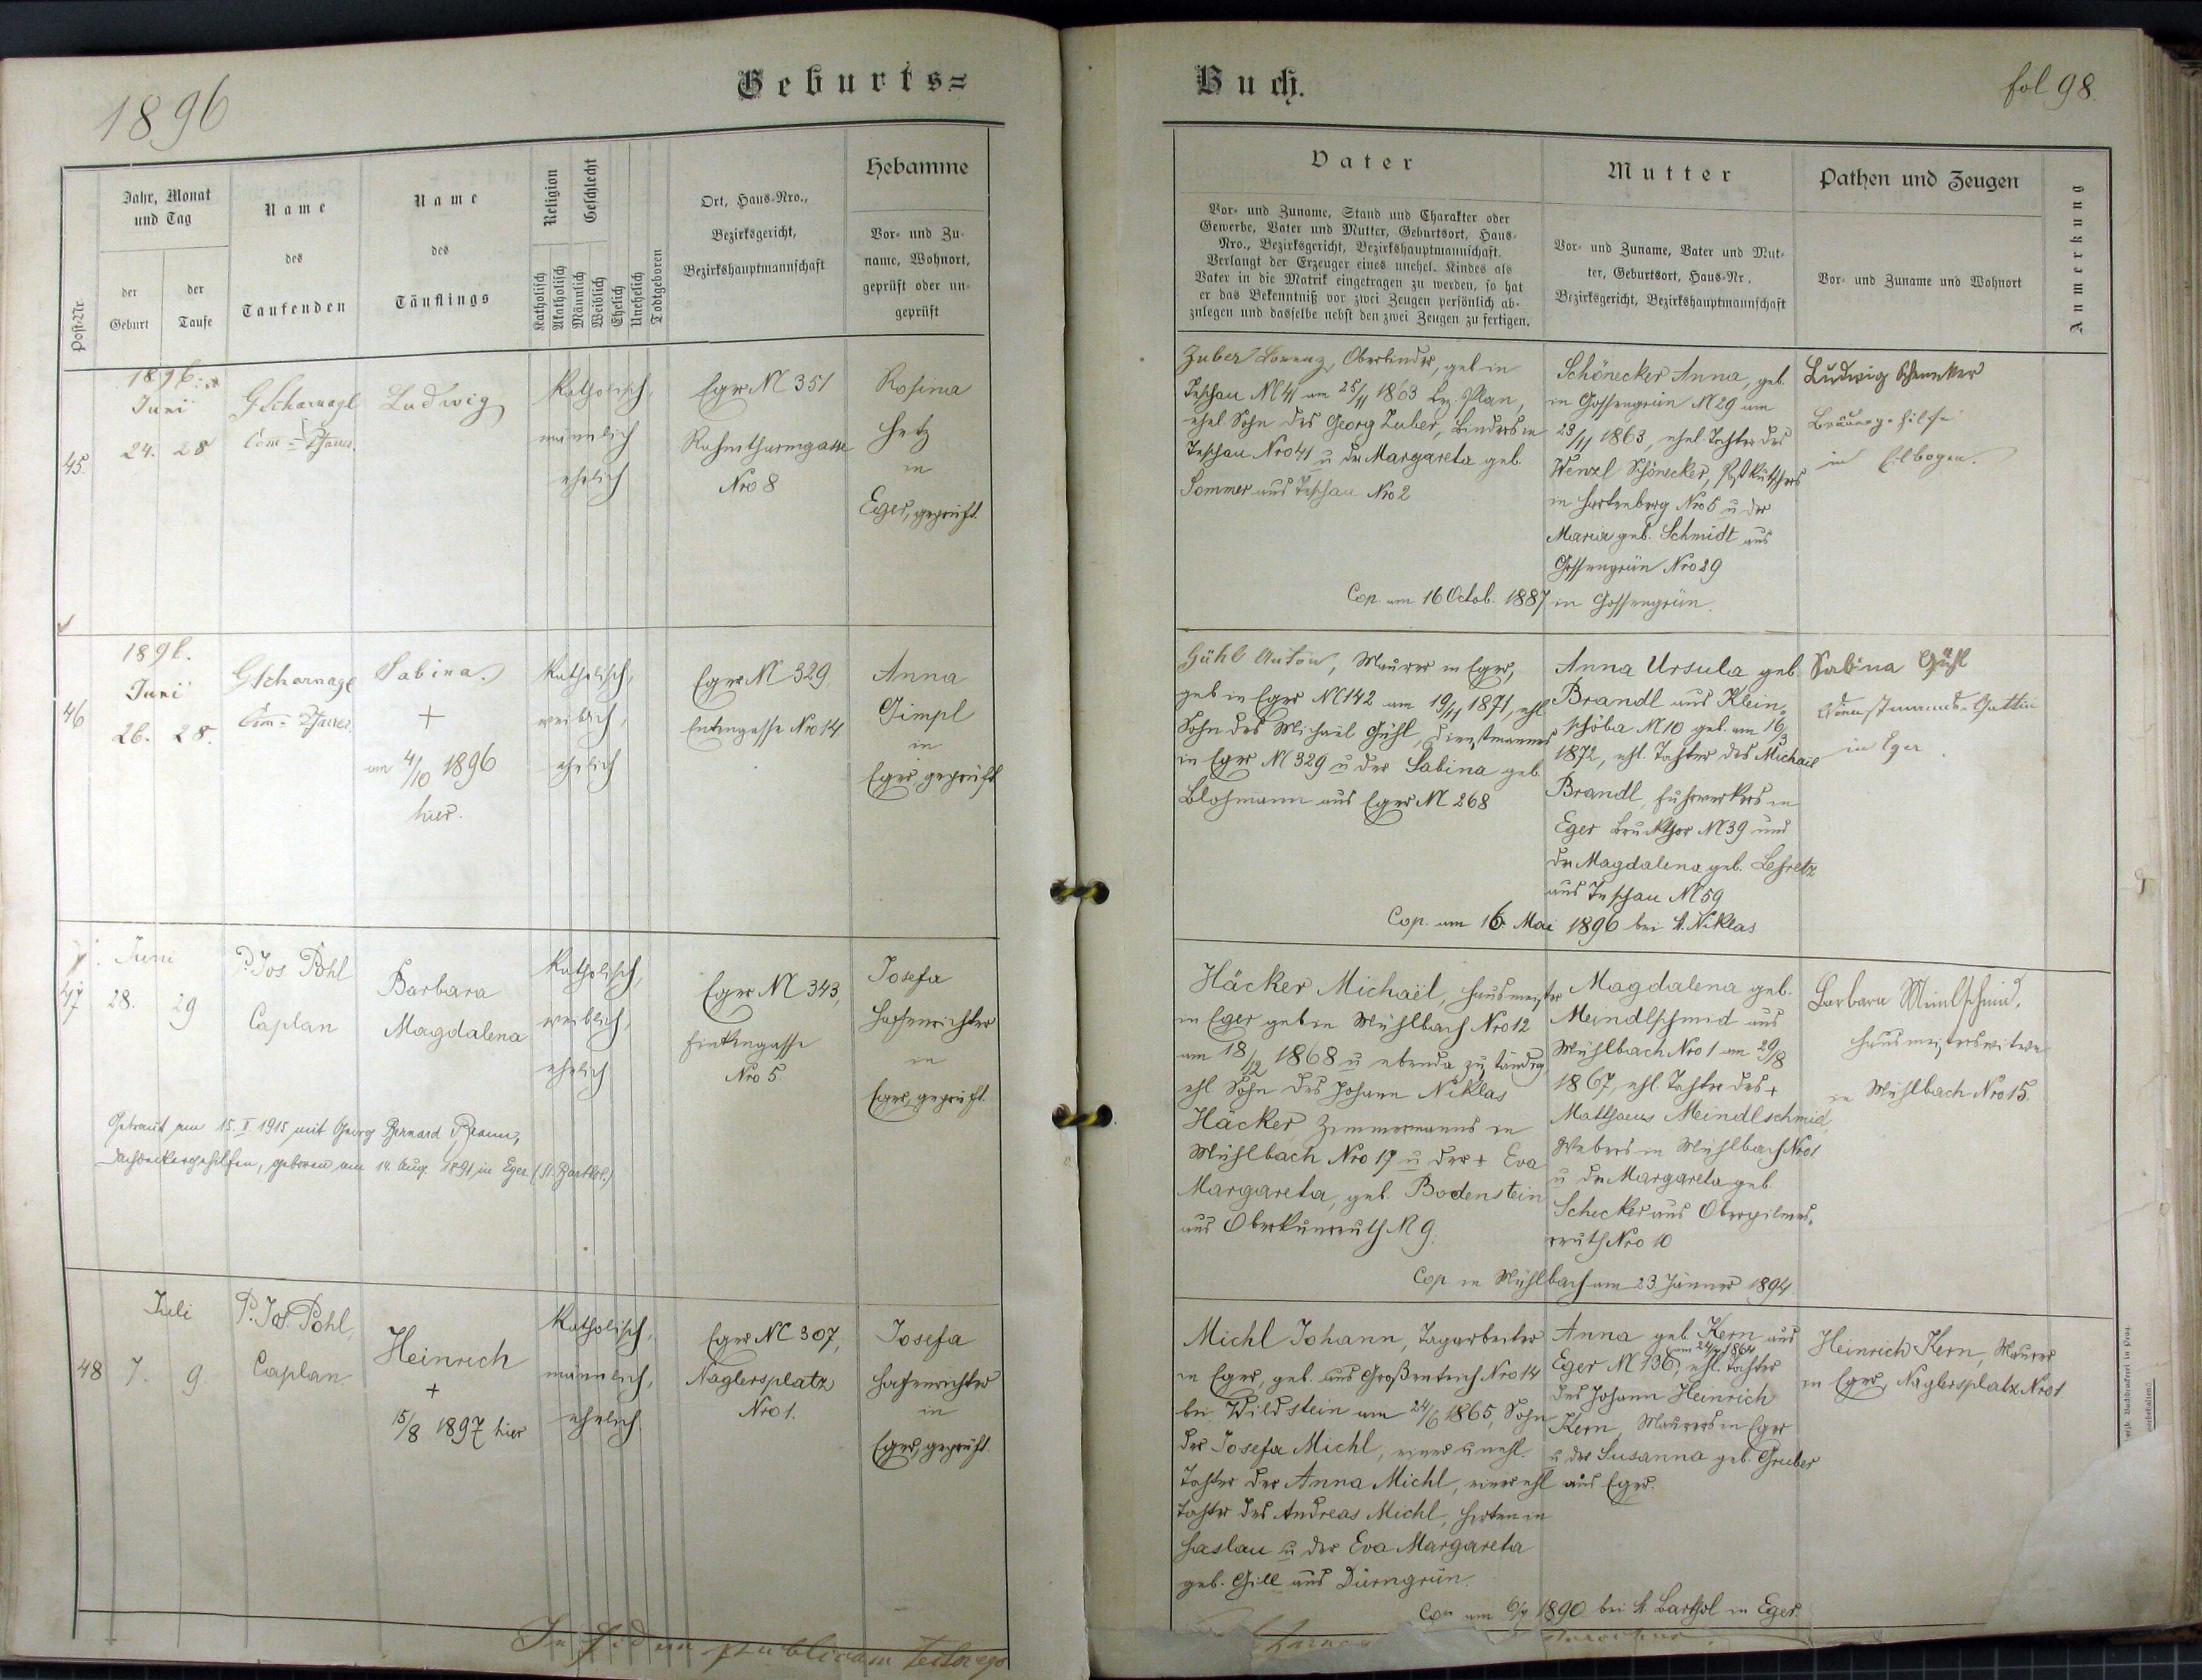 Geburts=
1896
Post-Nr.
Jahr, Monat
und Tag
der
Geburt
der
Taufe
Name
des
Taufenden
Name
des
Täuflings
Religion
Geschlecht
Katholisch
Akatholisch
Männlich
Weiblich
Ehelich
Unehelich
Todtgeboren
Ort, Haus-Nro.,
Bezirksgericht,
Bezirkshauptmannschaft
Hebamme
Vor- und Zu-
name, Wohnort,
geprüft oder un-
geprüft
45.
1896.
Juni
24. 28
G Scharnagl
Ludwig
Katholisch,
männlich
ehelich
Eger N 351
Rahmthurmgasse
Nro 8
Rosina
Hetz
in
Eger, geprüft.
46
1896.
Juni
26. 28.
G Scharnagl
Sabina.
+
am 4/10 1896
hier.
Katholisch,
weiblich,
ehelich
Eger N 329
Entengasse Nro 14
Anna
Gimpl
in
Eger, geprüft
47
Juni
28. 29
P. Jos Pohl
Caplan
Barbara
Magdalena
Katholisch,
weiblich,
ehelich
Eger N 343,
Nro 5.
Josefa
Hafenrichter
in
Eger, geprüft.
Getraut am 15. 1915 mit Georg Bernard
Dachdeckergehilfen, geboren am 14. Aug. 1891 in Eger (St. Barthol.)
48
Juli
7. 9.
P. Jos. Pohl,
Caplan.
Heinrich
+
15/8 1897 hier
Katholisch,
männlich,
ehelich
Eger N 307,
Naglersplatz
Nro 1.
Josefa
Hafenrichter
in
Eger, geprüft.
In fidem publicam testor ego
Buch.
fol 98.
Vater
Vor- und Zuname, Stand und Charakter oder
Gewerbe, Vater und Mutter, Geburtsort, Haus-
Nro., Bezirksgericht, Bezirkshauptmannschaft.
Verlangt der Erzeuger eines unehel. Kindes als
Vater in die Matrik eingetragen zu werden, so hat
er das Bekenntniß vor zwei Zeugen persönlich ab-
zulegen und dasselbe nebst den zwei Zeugen zu fertigen.
Mutter
Vor- und Zuname, Vater und Mut-
ter, Geburtsort, Haus-Nr.
Bezirksgericht, Bezirkshauptmannschaft
Pathen und Zeugen
Vor- und Zuname und Wohnort
Anmerkung
Zuber Lorenz, Oberbinder, geb in
Teschau N 41 am 25/11 1863 Bez. Plan,
ehel Sohn des Georg Zuber, Binders in
Teschau Nro 41 u der Margareta geb.
Sommer aus Teschau Nro 2
Schönecker Anna, geb.
in Gossengrün N 29 am
23/11 1863, ehel. Tochter des
Wenzl Schönecker, Postkutschers
in Hartenberg Nro 5 u der
Maria geb. Schmidt aus
Gossengrün Nro 29
Ludwig
in Elbogen.
Cop. am 16 Octob. 1887 in Gossengrün.
Gühl Anton, Maurer in Eger,
geb in Eger N 142 am 19/11 1871, ehl
Sohn des Michael Gühl, Dienstmannes
in Eger N 329 u der Sabina geb.
Bloßmann aus Eger N 268
Anna Ursula geb.
Brandl aus Klein-
schöba N 10 geb. am 16/3
1872, ehl. Tochter des Michael
Brandl, Fuhrwerkers in
Eger Bruckthor N 39 und
der Magdalena geb.
aus Teschau N 59
Sabina Gühl
Dienstmanns-Gattin
in Eger.
Cop. am 16. Mai 1896 bei St. Niklas
Häcker Michaël, Hausmeister
in Eger geb in Mühlbach Nro 12
am 18/12 1868 u ebenda zuständig,
ehl Sohn des Johann Niklas
Häcker, Zimmermanns in
Mühlbach Nro 17 u der + Eva
Margareta, geb. Bodenstein
aus Oberkunreuth N 9.
Magdalena geb.
Meindlschmid aus
Mühlbach Nro 1 am 29/8
1867, ehl. Tochter des +
Matthaeus Meindlschmid,
Webers in Mühlbach Nro 1
u der Margareta geb.
Schecker aus Oberpilmers-
reuth Nro 10
Barbara
Hausmeisterswitwe
in Mühlbach Nro 15.
Cop in Mühlbach am 23 Jänner 1894.
Michl Johann, Tagarbeiter
in Eger, geb. aus Großenteich Nro 14
bei Wildstein am 24/6 1865, Sohn
der Josefa Michl, einer unehl.
Tochter der Anna Michl, einer ehl
Tochter des Andreas Michl, Hirten in
Haslau u der Eva Margareta
geb. Gill aus Dürngrün.
Anna geb. Kern aus
Eger N 136, ehl. Tochter
des Johann Heinrich
Kern, Maurers in Eger
u der Susanna geb. Gruber
aus Eger.
Heinrich Kern, Maurer
in Eger, Naglersplatz Nro 1
Cop am 6/7 1890 bei St. Barthol in Eger.